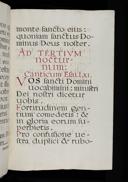 monte sancto eius:
quoniam sanctus Do-
minus Deus noster.
AD TERTIVM
noctur-
num:
Canticum Esa. Lxi.
VOS sancti Domini
vocabimini: ministri
Dei nostri dicetur
vobis.
Fortitudinem gen-
tium comedetis: &
in gloria eorum su-
perbietis.
Pro confusione ve-
stra duplici & rubo-